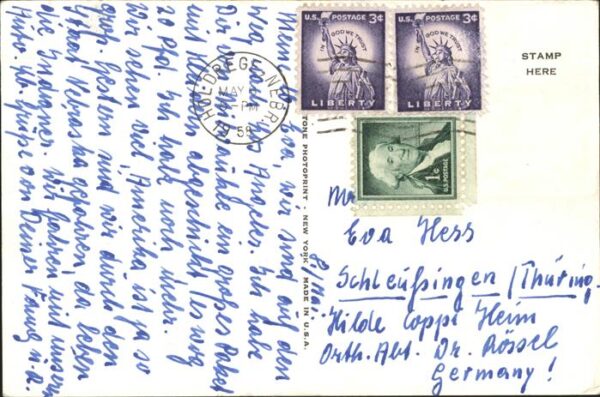 Meine l. Eva, wir sind auf dem
Weg nach Los Angeles. Ich habe
Dir ein großes Paket
mit Kleidern abgeschickt. Es wog
20 Pfd. Ich hab noch mehr.
Wir sehen viel, Amerika ist ja so
groß. Gestern sind wir durch den
Staat Nebraska gefahren, da leben
die Indianer. Wir fahren mit unserm
Auto.
HOLDREGE, NEBR.
MAY
PM
58
U.S. POSTAGE 3¢
IN GOD WE TRUST
LIBERTY
U.S. POSTAGE 3¢
IN GOD WE TRUST
LIBERTY
1¢
U.S. POSTAGE
STAMP
HERE
TONE PHOTOPRINT, NEW YORK, MADE IN U.S.A.
Eva Hess
Schleußingen / Thüring.
Hilde Coppi Heim
Orth. Abt. Dr. Rössel
Germany!